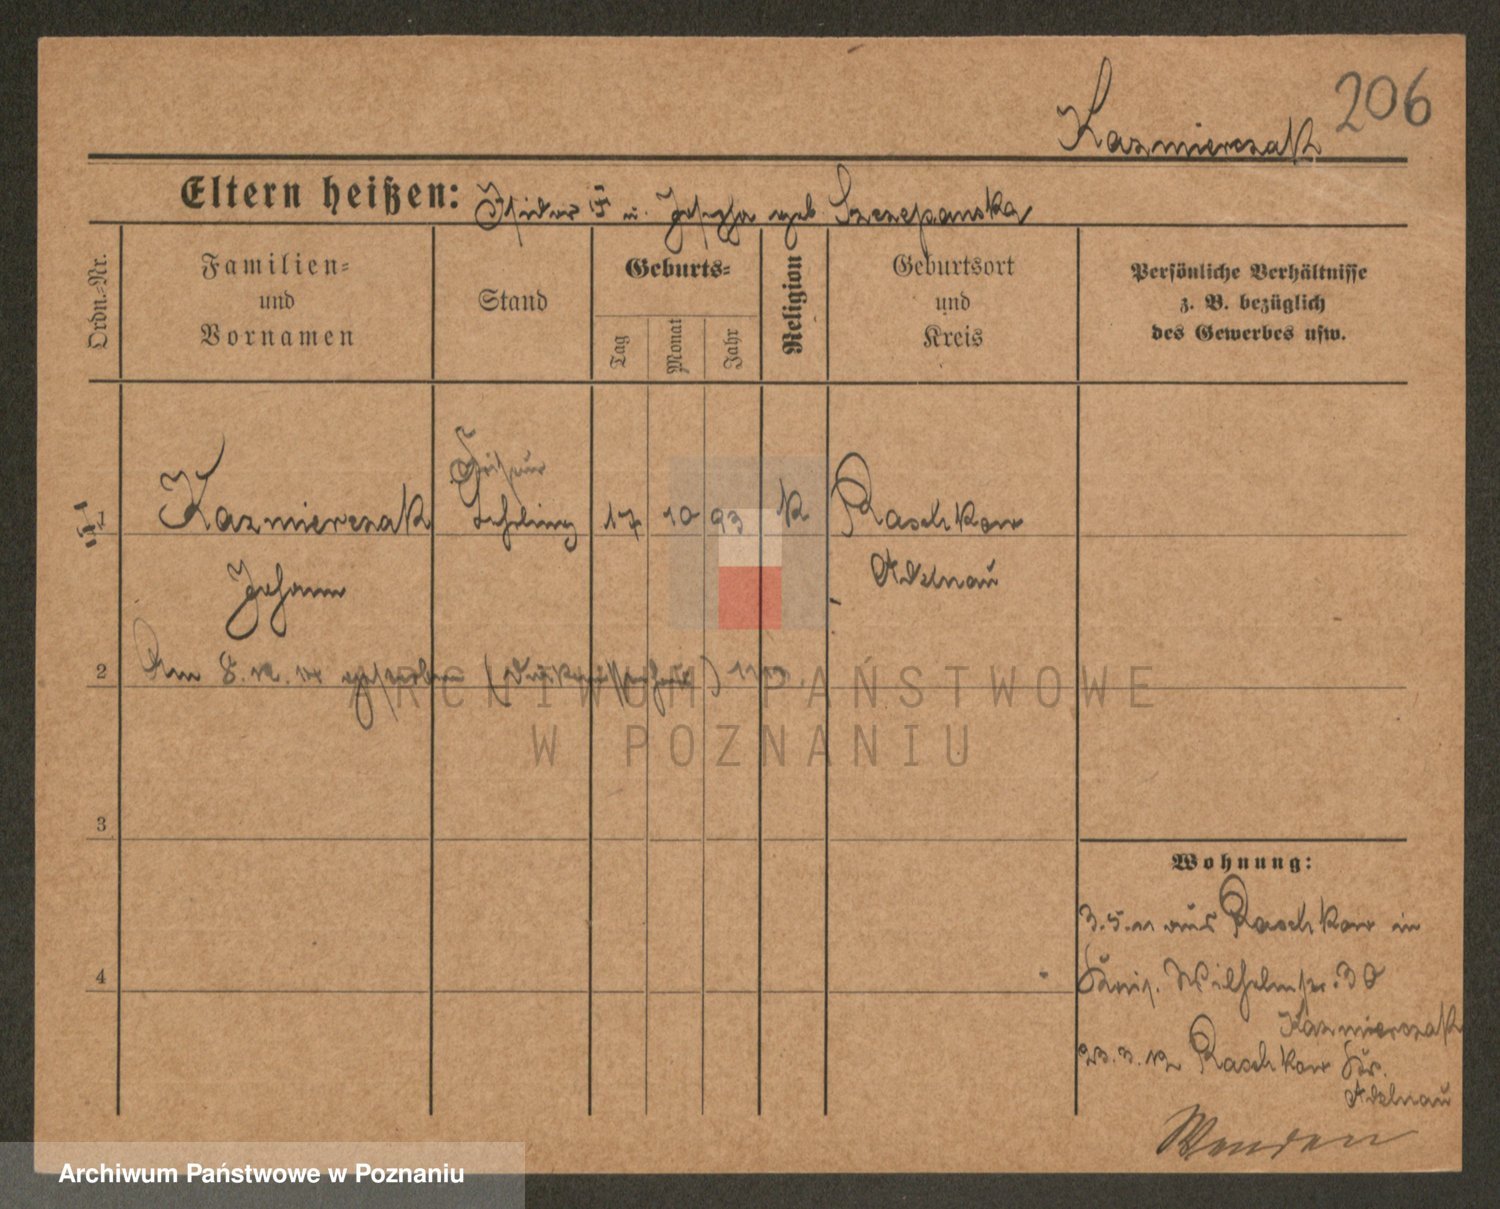 206
Kazmierczak
Eltern heißen: Isidor † u. Josepha geb Szczepanska
Ordn.=Nr.
Familien=
und
Vornamen
Stand
Geburts=
Tag
Monat
Jahr
Religion
Geburtsort
und
Kreis
Persönliche Verhältnisse
z. B. bezüglich
des Gewerbes usw.
Friseur
1 Kazmierczak Lehrling 17 10 93 K Raschkow
Johann Adelnau
2 Am 8. gestorben
ARCHIWUM PAŃSTWOWE
W POZNANIU
3
Wohnung:
3.5.11 aus Raschkow in
4
Wilhelmstr. 30
Kazmierczak
23.3.12 Raschkow Kr.
Adelnau
Wenden
Archiwum Państwowe w Poznaniu